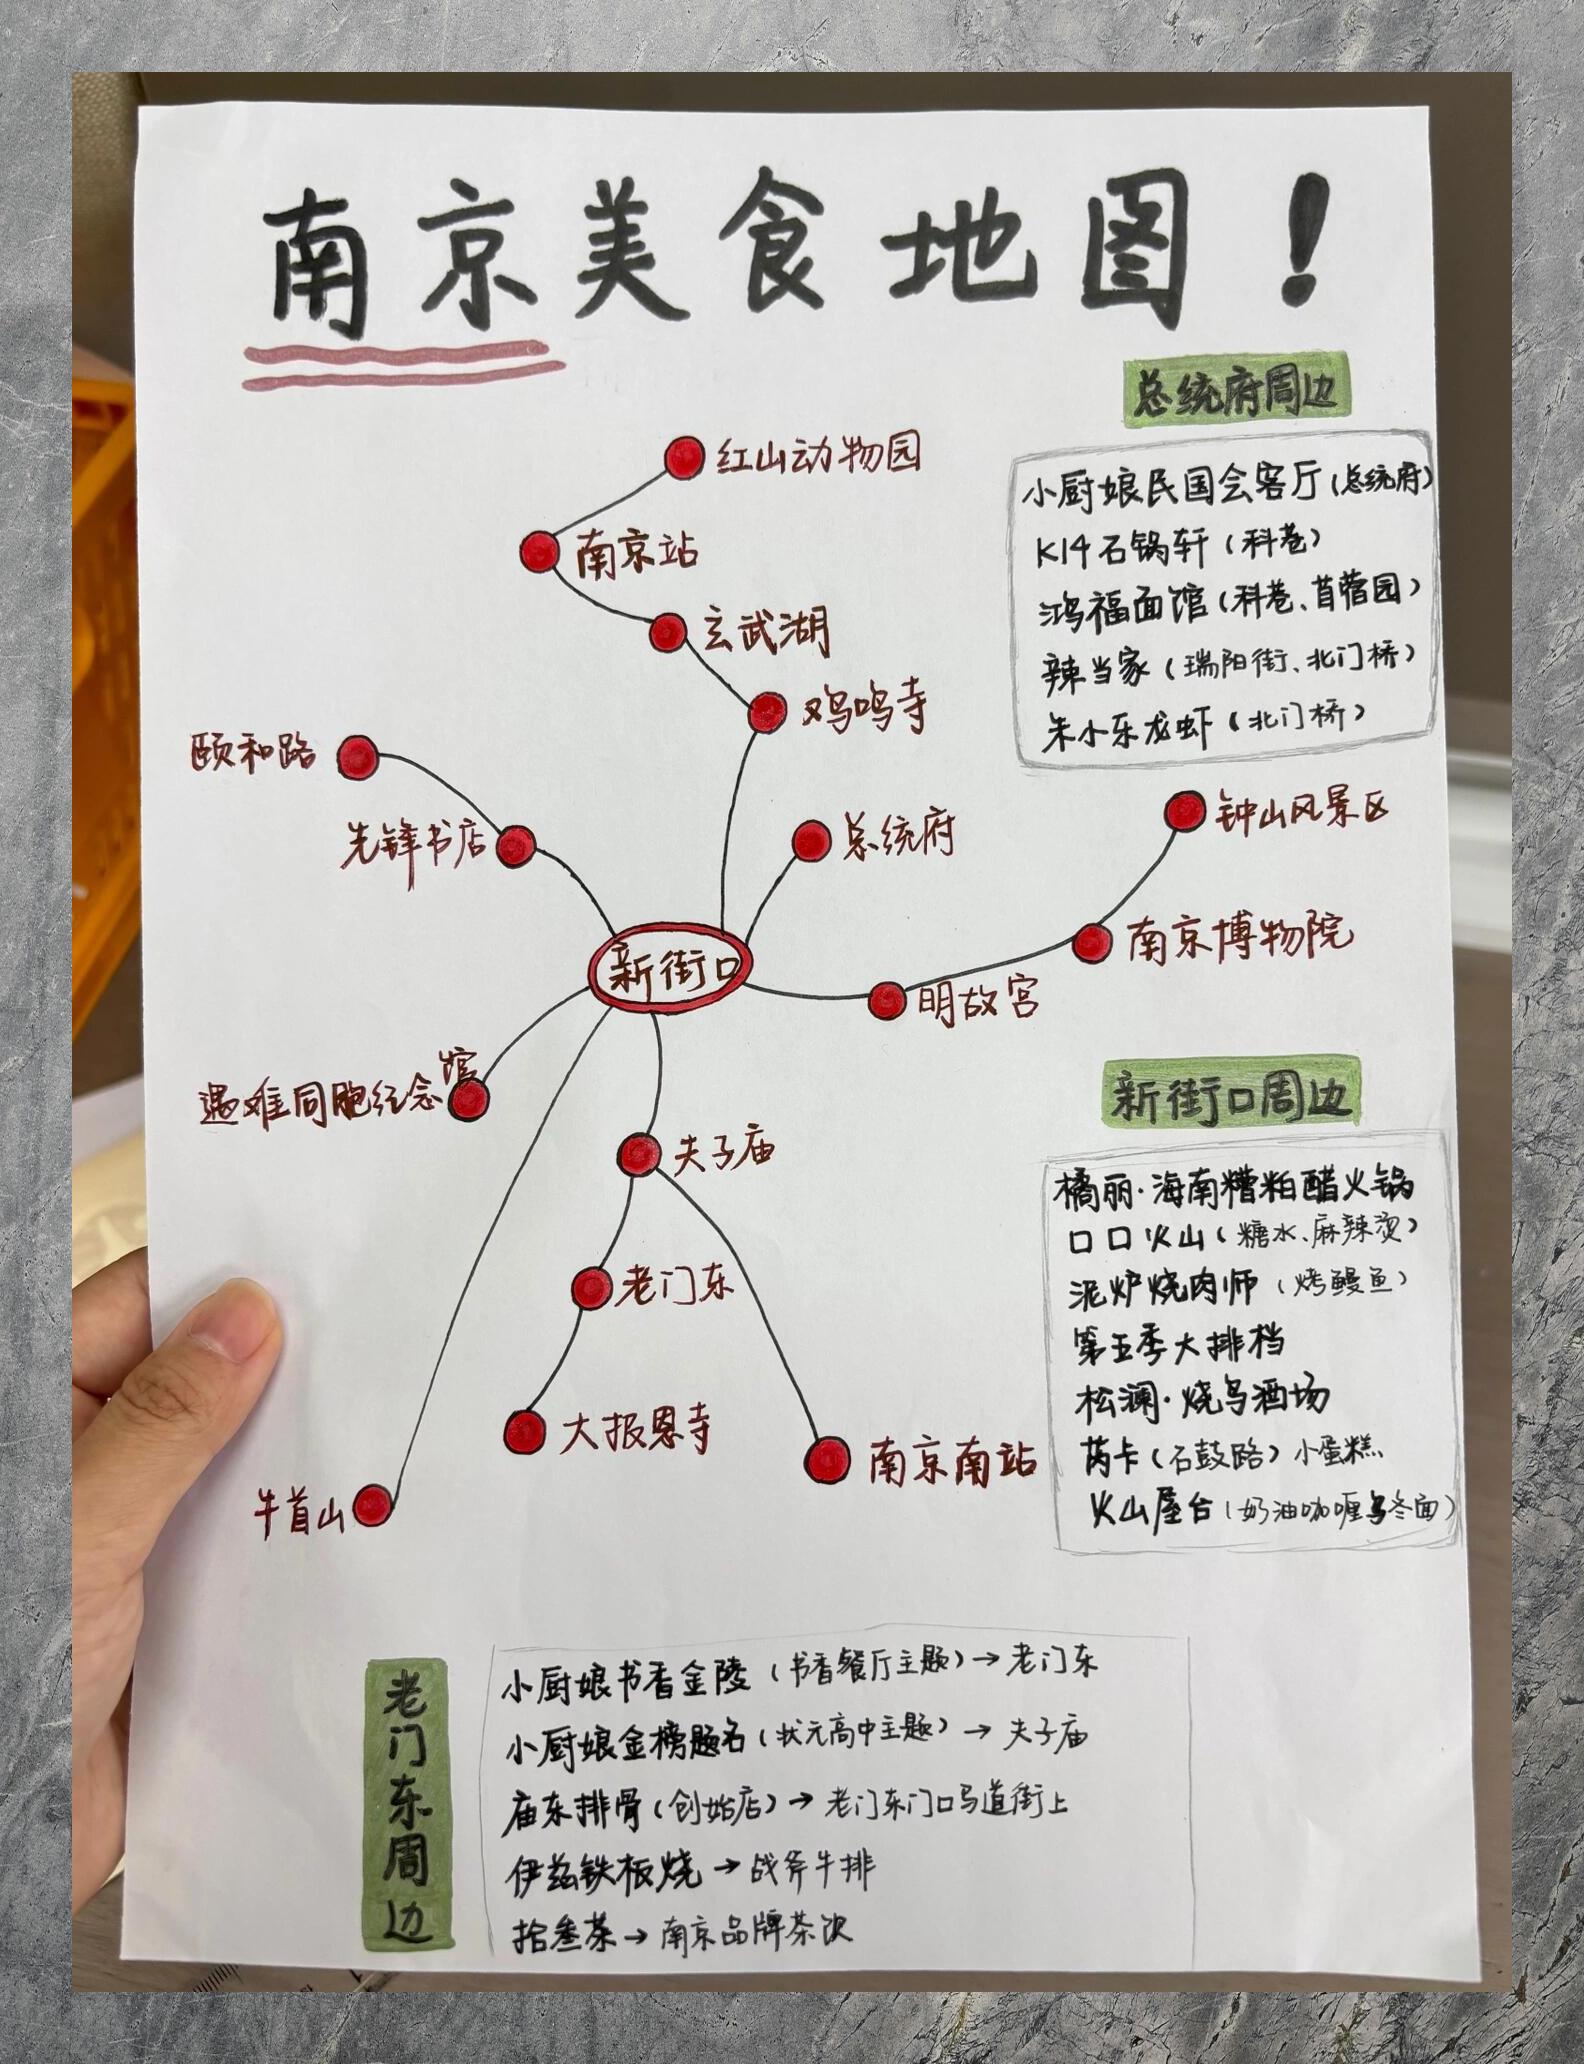 南京美食地图！
总统府周边
小厨娘民国会客厅（总统府）
K14石锅轩（科巷）
鸿福面馆（科巷、苜蓿园）
辣当家（瑞阳街、北门桥）
朱小乐龙虾（北门桥）
红山动物园
南京站
玄武湖
鸡鸣寺
颐和路
先锋书店
总统府
钟山风景区
南京博物院
新街口
明故宫
遇难同胞纪念馆
夫子庙
老门东
大报恩寺
南京南站
牛首山
新街口周边
橘丽·海南糟粕醋火锅
口口火山（糖水、麻辣烫）
泥炉烧肉师（烤鳗鱼）
第五季大排档
松澜·烧鸟酒场
芮卡（石鼓路）小蛋糕
火山屋台（奶油咖喱乌冬面）
老门东周边
小厨娘书香金陵（书香餐厅主题）→老门东
小厨娘金榜题名（状元高中主题）→夫子庙
庙东排骨（创始店）→老门东门口马道街上
伊兹铁板烧→战斧牛排
拾叁茶→南京品牌茶饮